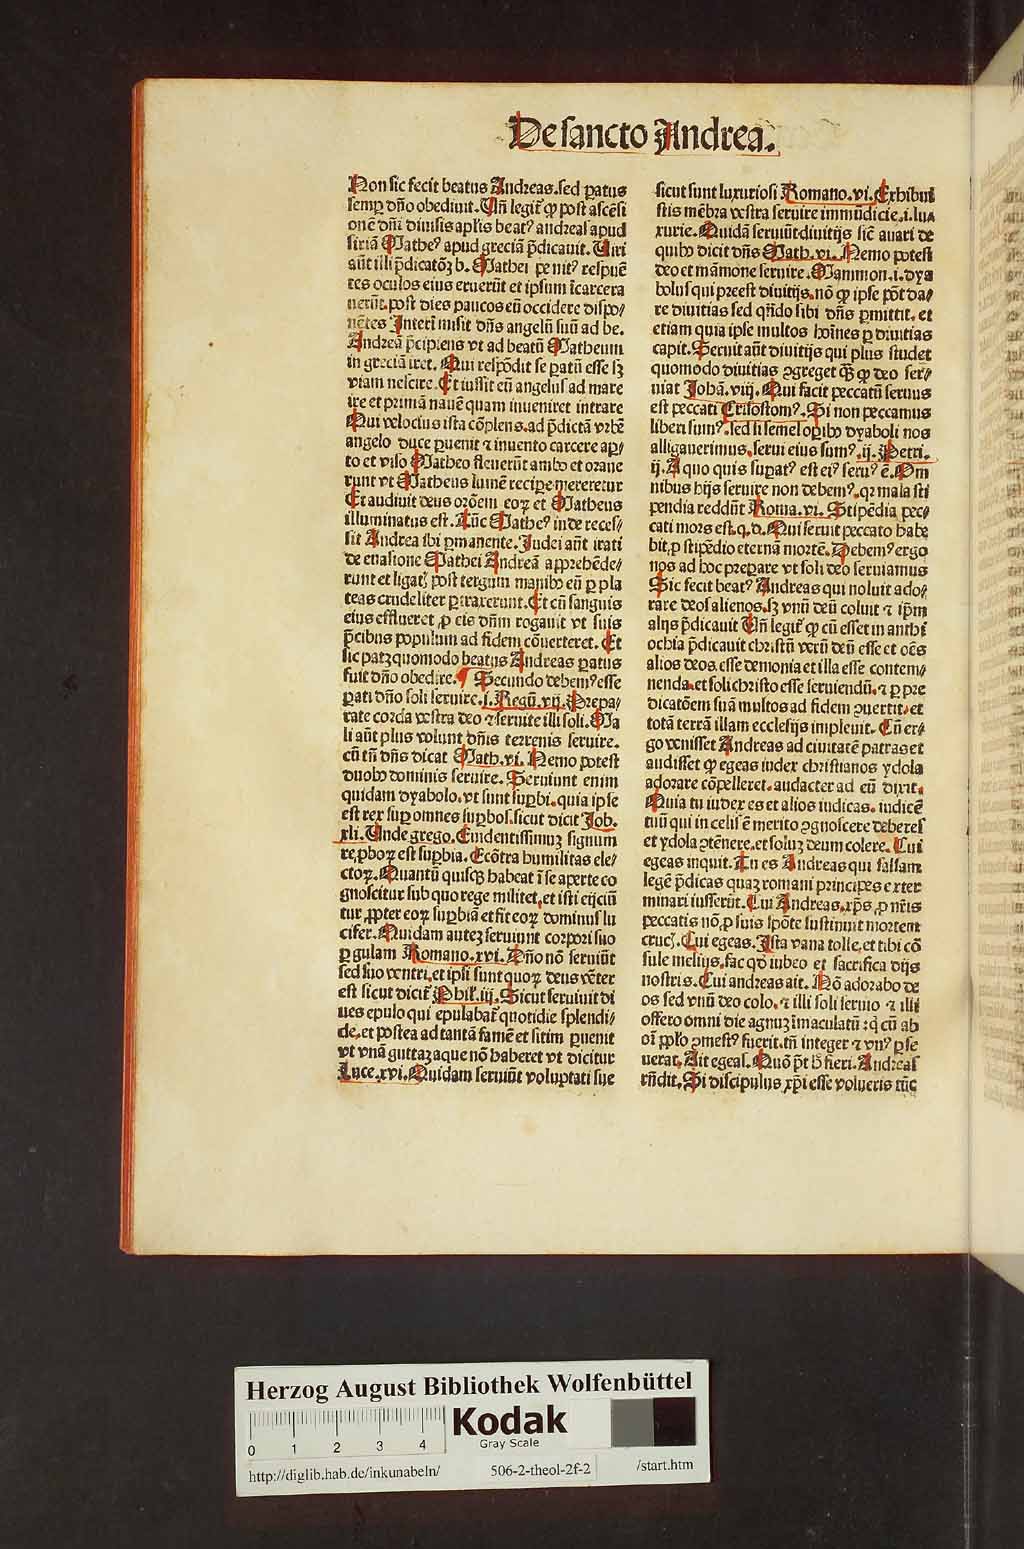 De sancto Andrea.
Non sic fecit beatus Andreas. sed paratus
semp dño obediuit. Uñ legit̄ qp post ascēsi
onē dñi diuisis aplis beat⁹ andreas apud
siriā Mathe⁹ apud greciā p̄dicauit. Uiri
aūt illi p̄dicatōꝫ b. Mathei penit⁹ respuē
tes oculos eius eruerūt et ipsum īcarcera
uerūt. post dies paucos eū occidere dispo/
nētes Interī misit dñs angelū suū ad be.
Andreā p̄cipiens vt ad beatū Matheum
in greciā iret. Qui respōdit se paratū esse sꝫ
viam nescire. Et iussit eū angelus ad mare
ire et primā nauē quam inueniret intrare
Qui velocius ista cōplens. ad p̄dictā vrbē
angelo duce puenit ⁊ inuento carcere ap/
to et viso Matheo fleuerūt ambo et oraue
runt vt Matheus lumē recipe mereretur
Et audiuit deus orōem eoꝝ et Matheus
illuminatus est. Tūc Mathe⁹ inde reces/
sit Andrea ibi pmanente. Iudei aūt irati
de euasione Mathei Andreā apprehēde/
runt et ligat⁹ post tergum manibꝰ eū p pla
teas crudeliter ptraxerunt. Et cū sanguis
eius efflueret ꝓ eis dñm rogauit vt suis
p̄cibus populum ad fidem cōuerteret. Et
sic patꝫ quomodo beatus Andreas patus
fuit dño obedire. ¶ Secundo debem⁹ esse
pati dño soli seruire. i. Regū. vij. Prepa/
rate corda vestra deo ⁊ seruite illi soli. Ma
li aūt plus volunt dñis terrenis seruire.
cū tn̄ dñs dicat Math. vi. Nemo potest
duobꝰ dominis seruire. Seruiunt enim
quidam dyabolo. vt sunt supbi. quia ipse
est rex sup omnes supbos. sicut dicit Job.
xli. Unde grego. Euidentissimuꝫ signum
reꝓboꝝ est supbia. Ecōtra humilitas ele/
ctoꝝ. Quantū quisqꝫ habeat ī se aperte co
gnoscitur sub quo rege militet. et isti eijciū
tur ꝓpter eoꝝ supbiā et fit eoꝝ dominus lu
cifer. Quidam auteꝫ seruiunt corpori suo
p gulam Romano. xvi. Dño nō seruiūt
sed suo ventri. et ipsi sunt quoꝝ deus vēter
est sicut dicit̄ Phil. iij. Sicut seruiuit di
ues epulo qui epulabat̄ quotidie splendi/
de. et postea ad tantā famē et sitim puenit
vt vnā guttaꝫ aque nō haberet vt dicitur
Luce. xvi. Quidam seruiūt voluptati sue
sicut sunt luxuriosi Romano. vi. Exhibui
stis mēbra vestra seruire immūdicie. i. lu/
xurie. Quidā seruiūt diuitijs sic̄ auari de
quibꝰ dicit dñs Math. vi. Nemo potest
deo et māmone seruire. Mammon. i. dya
bolus qui preest diuitijs. nō qp ipse pōt da/
re diuitias sed qn̄do sibi dñs pmittit. et
etiam quia ipse multos hoīnes p diuitias
capit. Seruit aūt diuitijs qui plus studet
quomodo diuitias ꝯgreget qꝫ̄ qp deo ser/
uiat Johā. viij. Qui facit peccatū seruus
est peccati Crisostom⁹. Si non peccamus
liberi sum⁹. sed si semel opibꝰ dyaboli nos
alligauerimus. serui eius sum⁹. ij. Petri.
ij. A quo quis supat⁹ est ei⁹ seru⁹ ē. Om
nibus hijs seruire non debem⁹. qr mala sti
pendia reddūt Roma. vi. Stipēdia pec/
cati mors est. q. d. Qui seruit peccato habe
bit ꝓ stipēdio eternā mortē. Debem⁹ ergo
nos ad hoc preparare vt soli deo seruiamus
Sic fecit beat⁹ Andreas qui noluit ado/
rare deos alienos. sꝫ vnū deū coluit ⁊ ipm̄
alijs p̄dicauit Uñ legit̄ qp cū esset in anthi
ochia p̄dicauit christū verū deū esse et oēs
alios deos esse demonia et illa esse contem/
nenda. et soli christo esse seruiendū. ⁊ p pre
dicatōem suā multos ad fidem ꝯuertit. et
totā terrā illam ecclesijs impleuit. Cū er/
go venisset Andreas ad ciuitatē patras et
audisset qp egeas iudex christianos ydola
adorare cōpelleret. audacter ad eū dixit.
Quia tu iudex es et alios iudicas. iudicē
tuū qui in celis ē merito ꝯgnoscere deberes
et ydola ꝯtēnere. et soluꝫ deum colere. Cui
egeas inquit. Tu es Andreas qui falsam
legē p̄dicas quaꝫ romani principes exter
minari iusserūt. Cui Andreas. xp̄s ꝓ nr̄is
peccatis nō ꝓ suis spōte sustinuit mortem
cruc⁹. Cui egeas. Ista vana tolle. et tibi cō
sule melius. fac qd̄ iubeo et sacrifica dijs
nostris. Cui andreas ait. Nō adorabo de
os sed vnū deo colo. ⁊ illi soli seruio ⁊ illi
offero omni die agnuꝫ īmaculatū: q̇ cū ab
oī pplo ꝯmest⁹ fuerit. tn̄ integer ⁊ vn⁹ pse
uerat. Ait egeas. Quō pt̄ h̄ fieri. Andreas
rn̄dit. Si discipulus xp̄i esse volueris tūc
Herzog August Bibliothek Wolfenbüttel
0 1 2 3 4
Kodak
Gray Scale
http://diglib.hab.de/inkunabeln/ 506-2-theol-2f-2 /start.htm